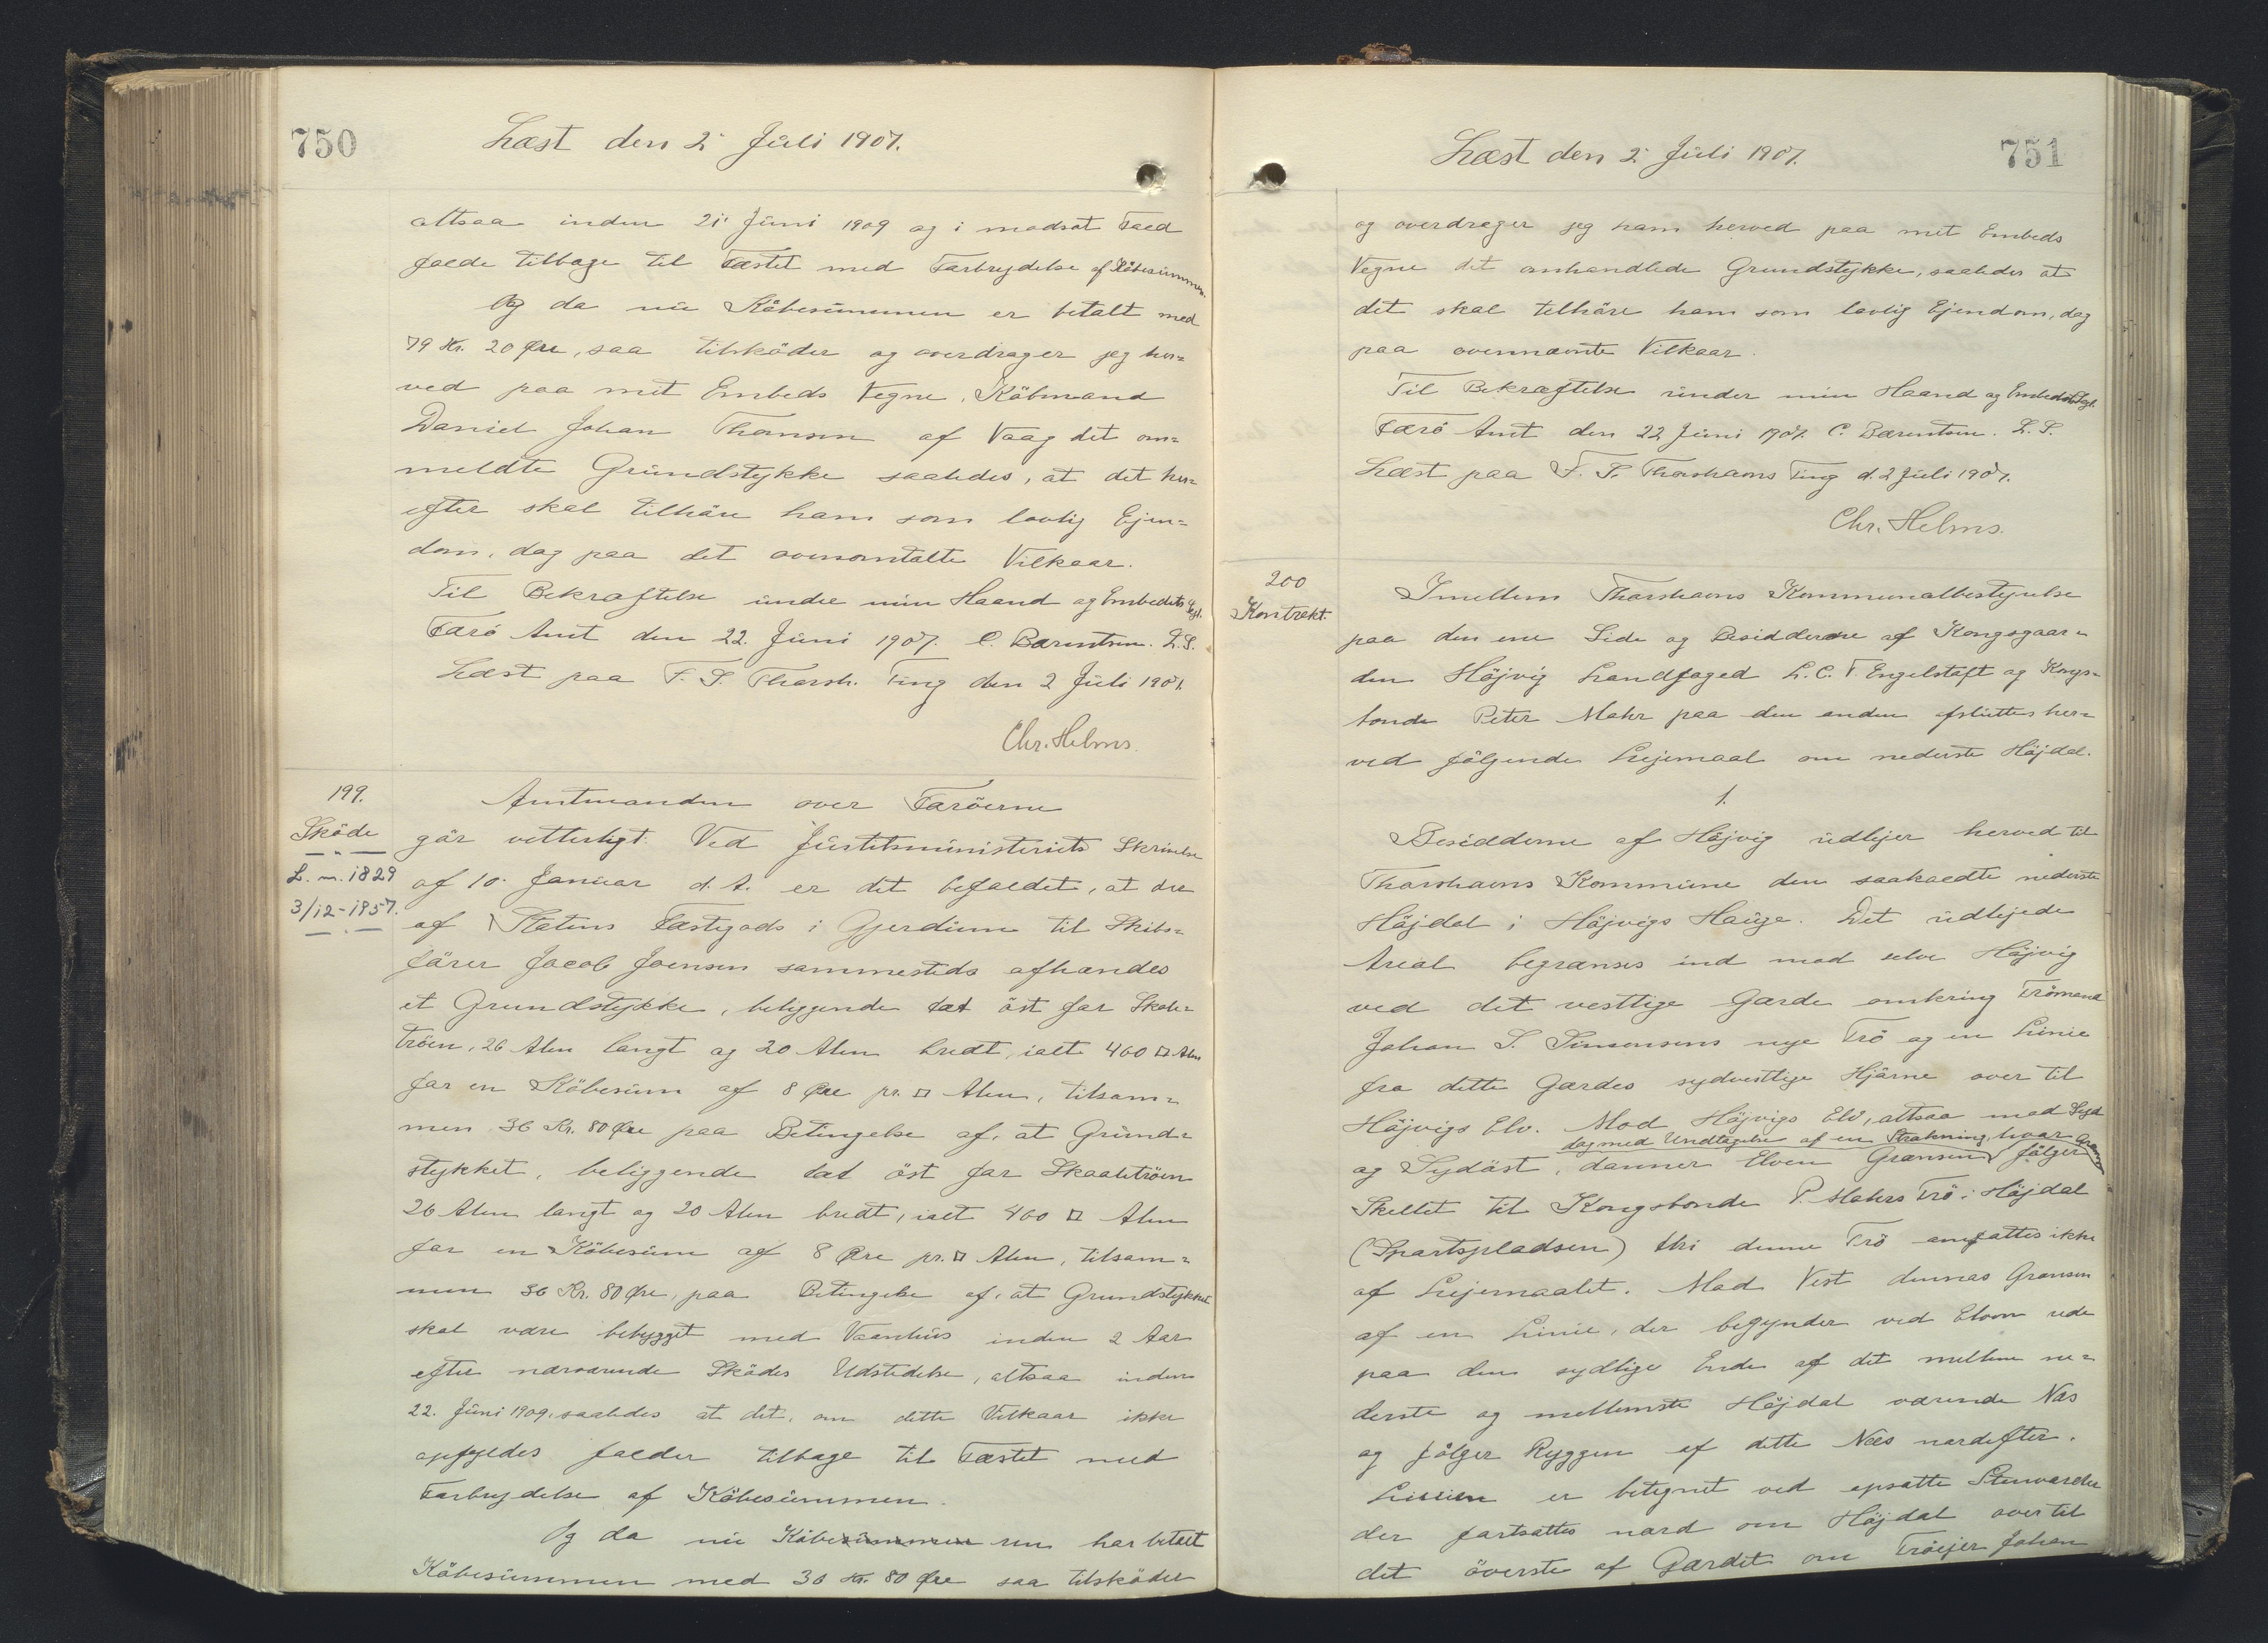 750
Læst den 2' Juli 1907.
altsaa inden 21' Juni 1909 og i modsat Fald
falde tilbage til Fæstet med Fortrydelse af Købesummen.
Og da nu Købesummen er betalt med
79 Kr. 20 Øre, saa tilskøder og overdrager jeg her-
ved paa mit Embeds Vegne, Købmand
Daniel Johan Thomsen af Vaag det om-
meldte Grundstykke saaledes, at det her-
efter skal tilhøre ham som lovlig Ejen-
dom, dog paa det ovenomtalte Vilkaar.
Til Bekræftelse under min Haand og Embedets Segl.
Færø Amt den 22. Juni 1907. C. Bærentsen. L.S.
Læst paa F. S. Thorsh. Ting den 2 Juli 1907.
Chr. Helms.
199.
Skøde
L. n. 1829
3/12-1957.
Amtmanden over Færøerne
gør vitterligt: Ved Justitsministeriets Skrivelse
af 10' Januar d. A. er det befaledet, at der
af Statens Fæstegods i Gjerdum til Skibs-
fører Jacob Joensen sammesteds afhændes
et Grundstykke, beliggende tæt øst for Skole-
trøen, 26 Alen langt og 20 Alen bredt, ialt 460 □ Alen
for en Købesum af 8 Øre pr. □ Alen, tilsam-
men 36 Kr. 80 Øre paa Betingelse af, at Grund-
stykket, beliggende tæt øst for Skaaletrøen
26 Alen langt og 20 Alen bredt, ialt 460 □ Alen
for en Købesum af 8 Øre pr. □ Alen, tilsam-
men 36 Kr. 80 Øre, paa Betingelse af, at Grundstykket
skal være bebygget med Vaanhus inden 2 Aar
efter nærværende Skødes Udstedelse, altsaa inden
22. Juni 1909, saaledes at det, om dette Vilkaar ikke
opfyldes falder tilbage til Fæstet med
Fortrydelse af Købesummen.
Og da nu Købesummen nu har betalt
Købesummen med 36 Kr. 80 Øre saa tilskøder
751
Læst den 2' Juli 1907.
og overdrager jeg ham herved paa mit Embeds
Vegne det omhandlede Grundstykke, saaledes at
det skal tilhøre ham som lovlig Ejendom, dog
paa ovennævnte Vilkaar.
Til Bekræftelse under min Haand og Embedets Segl.
Færø Amt den 22 Juni 1907. C. Bærentsen. L.S.
Læst paa F. S. Thorshavns Ting d. 2 Juli 1907.
Chr. Helms.
200
Kontrakt.
Imellem Thorshavns Kommunalbestyrelse
paa den ene Side og Besidderne af Kongsgaar-
den Højvig Landfoged L. C. F. Engelstoft og Kongs-
bonde Peter Mohr paa den anden afsluttes her-
ved følgende Lejemaal om nederste Højdal.
1.
Besidderne af Højvig udlejer herved til
Thorshavns Kommune den saakaldte nederste
Højdal i Højvigs Hauge. Det udlejede
Areal begrænses ind mod selve Højvig
ved det vestlige Gærde omkring Trømand
Johan S. Simonsens nye Trø og en Linie
fra dette Gærdes sydvestlige Hjørne over til
Højvigs Elv. Mod Højvigs Elv, altsaa mod Syd
dog med Undtagelse af en Strækning, hvor Grænsen
og Sydøst, danner Elven Grænsen følger
Skellet til Kongsbonde P. Mohrs Trø i Højdal
(Sportspladsen) thi denne Trø omfattes ikke
af Lejemaalet. Mod Vest dannes Grænsen
af en Linie, der begynder ved Elven nede
paa den sydlige Ende af det mellem ne-
derste og mellemste Højdal værende Næs
og følger Ryggen af dette Næs nordefter.
Linien er betegnet ved opsatte Stenvarder
der fortsættes nord om Højdal over til
det øverste af Gærdet om Trøejer Johan